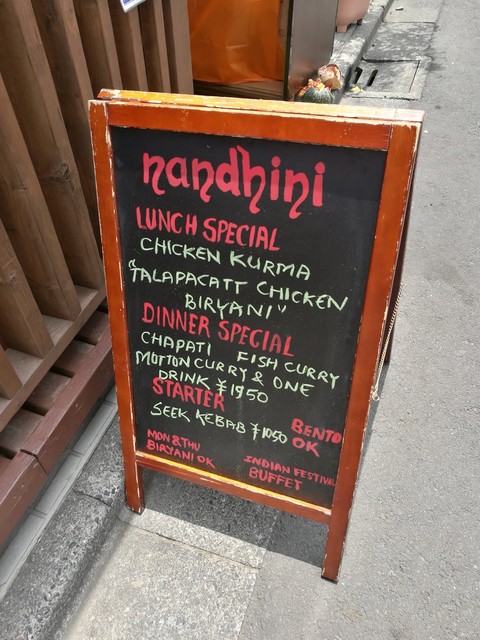 nandhini
LUNCH SPECIAL
CHICKEN KURMA
"TALAPACATT CHICKEN
BIRYANI"
DINNER SPECIAL
CHAPATI FISH CURRY
MOTTON CURRY & ONE
DRINK ¥1950
STARTER
SEEK KEBAB ¥1050
BENTO
OK
MON & THU
BIRYANI OK
INDIAN FESTIVAL
BUFFET